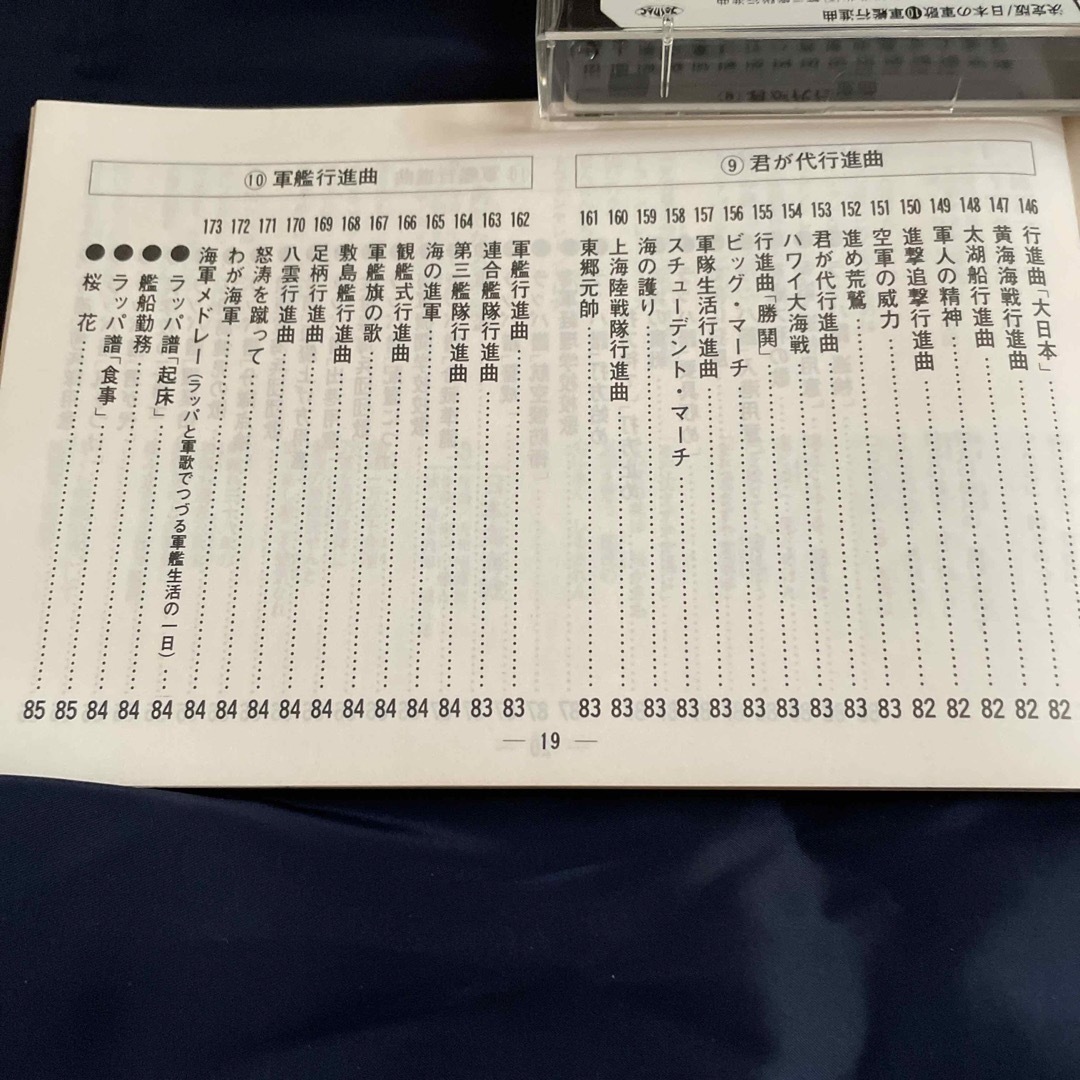 決定版/日本の軍歌⑩軍艦行進曲
⑨ 君が代行進曲
146 行進曲「大日本」
147 黄海海戦行進曲 82
148 太湖船行進曲 82
149 軍人の精神 82
150 進撃追撃行進曲 82
151 空軍の威力 82
152 進め荒鷲 83
153 君が代行進曲 83
154 ハワイ大海戦 83
155 行進曲「勝鬨」 83
156 ビッグ・マーチ 83
157 軍隊生活行進曲 83
158 スチューデント・マーチ 83
159 海の護り 83
160 上海陸戦隊行進曲 83
161 東郷元帥 83
⑩ 軍艦行進曲
162 軍艦行進曲 83
163 連合艦隊行進曲 83
164 第三艦隊行進曲 84
165 海の進軍 84
166 観艦式行進曲 84
167 軍艦旗の歌 84
168 敷島艦行進曲 84
169 足柄行進曲 84
170 八雲行進曲 84
171 怒涛を蹴って 84
172 わが海軍 84
173 海軍メドレー(ラッパと軍歌でつづる軍艦生活の一日) 84
●ラッパ譜「起床」 84
●艦船勤務 84
●ラッパ譜「食事」 85
●桜 花 85
— 19 —